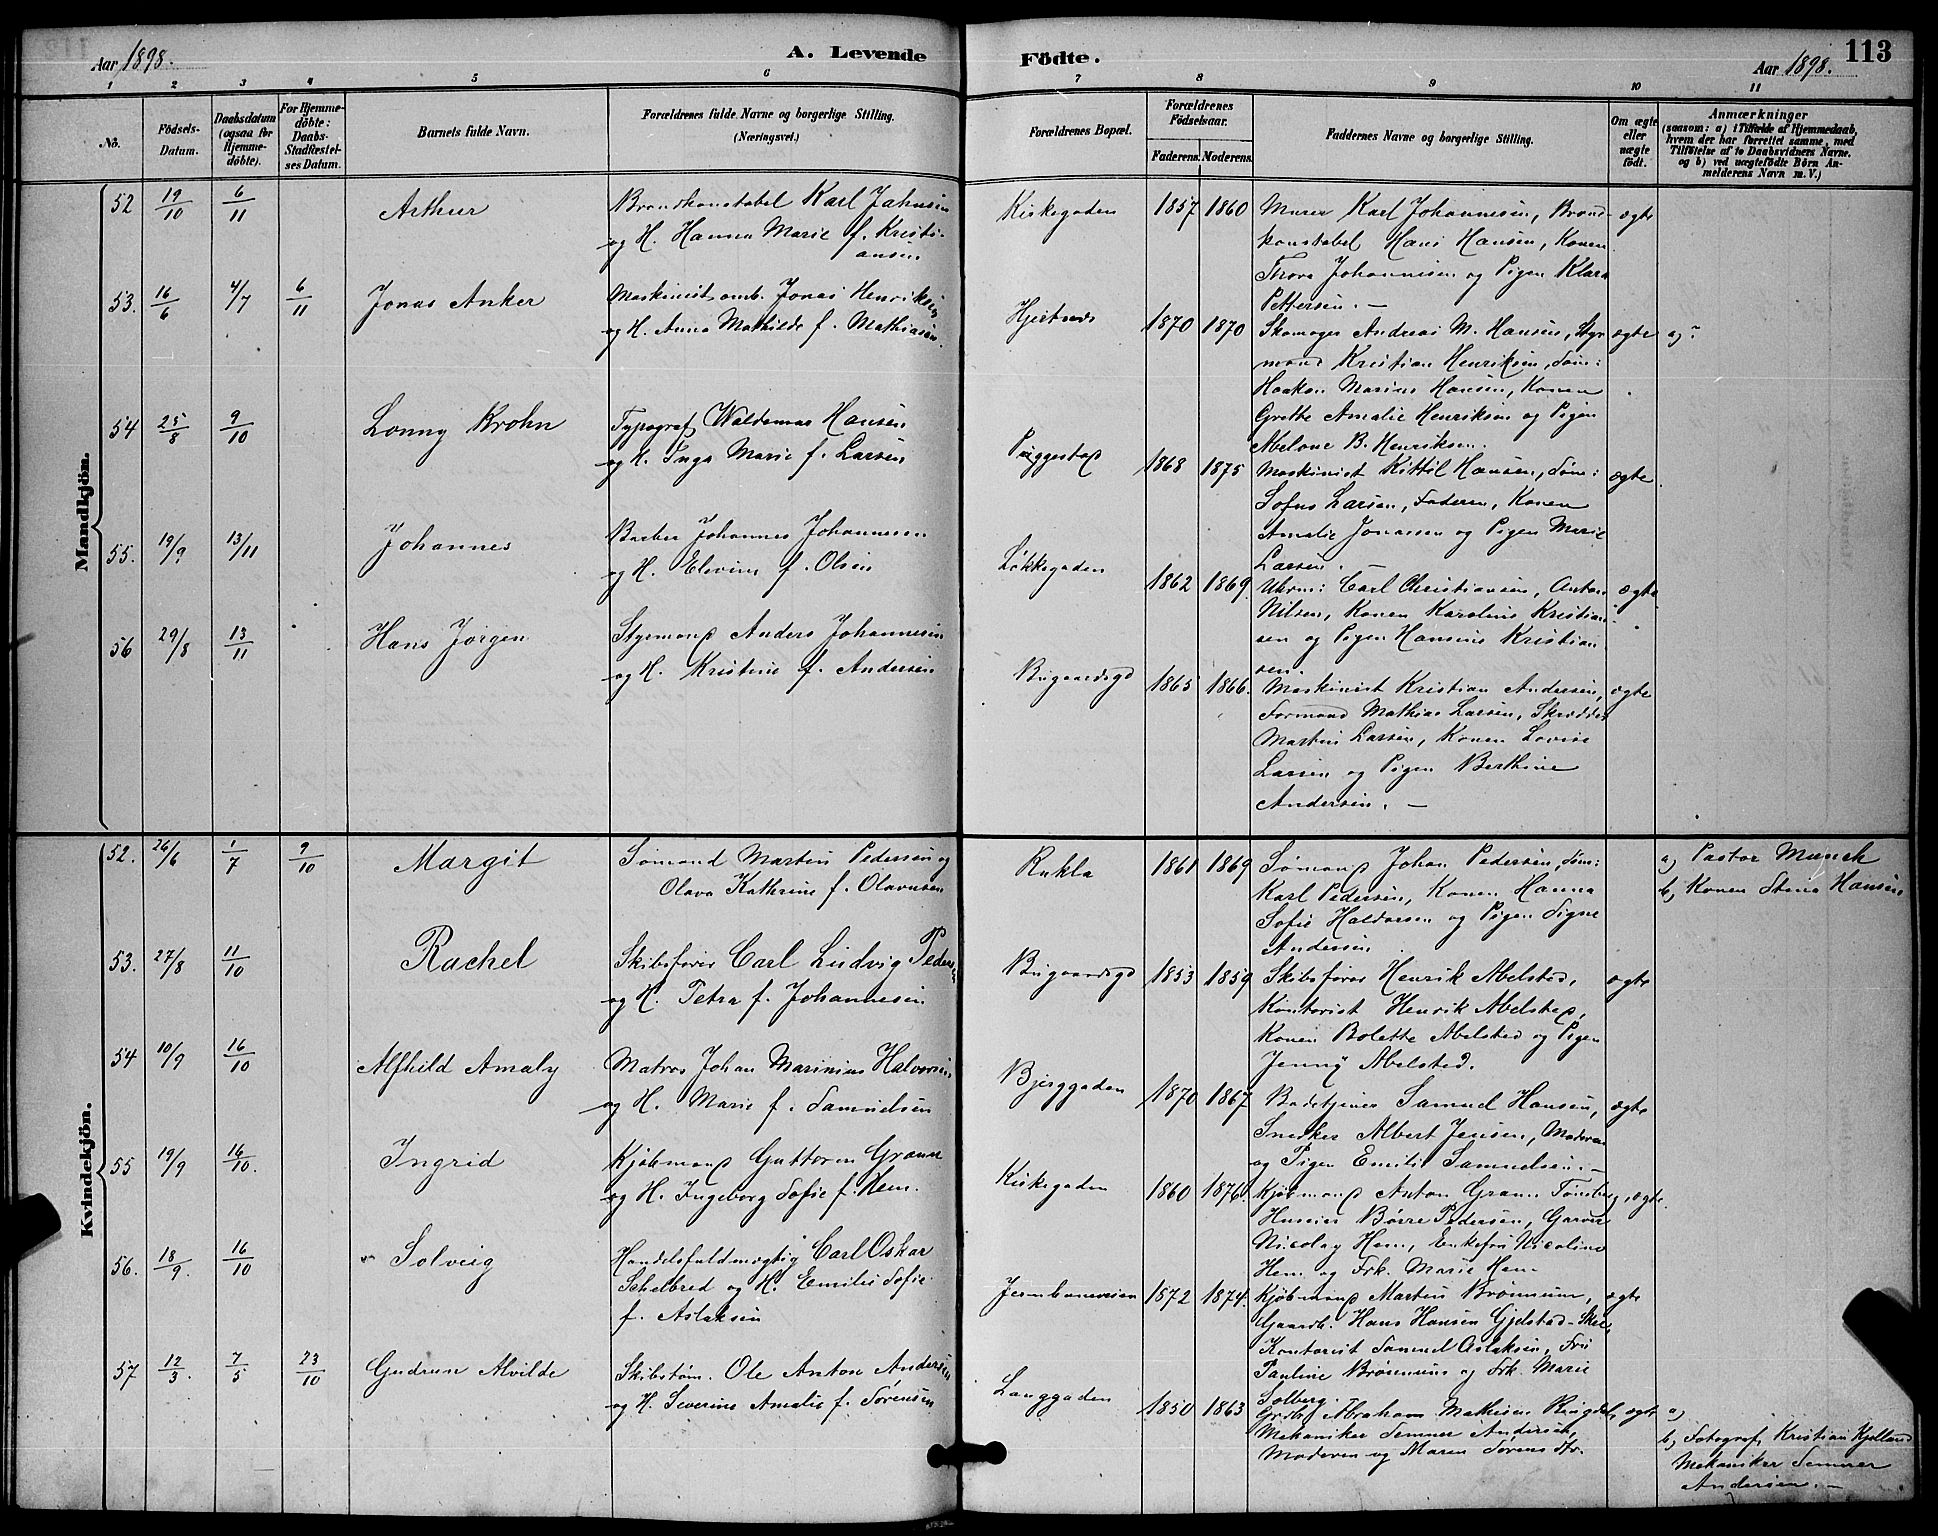 Aar 1898.
A. Levende
1 2 3 4 5 6
No.
Födsels-Datum.
Daabsdatum (ogsaa for Hjemme-döbte).
For Hjemme-döbte: Daabs-Stadfæstel-ses Datum.
Barnets fulde Navn.
Forældrenes fulde Navne og borgerlige Stilling.
(Næringsvei.)
Mandkjön.
52 19/10 6/11 Arthur Brandkonstabel Karl Jahnsen
og H. Hanna Marie f. Kristi-
ansen
53. 16/6 4/7 6/11 Jonas Anker Maskinist omb. Jonas Henriksen
og H. Anna Mathilde f. Mathiasen.
54 25/8 9/10 Lonny Krohn Typograf Waldemar Hansen
og H. Inga Marie f. Larsen
55. 19/9 13/11 Johannes Barber Johannes Johannessen
og H. Elevine f. Olsen
56 29/8 13/11 Hans Jörgen Styrmand Anders Johannesen
og H. Kristine f. Andersen
Kvindekjön.
52. 26/6 1/7 9/10 Margit Sømand Martin Pedersen og
Olava Kathrine f. Olavesen
53. 27/8 11/10 Rachel Skibsfører Carl Ludvig Peders
og H. Petra f. Johannesen
54 10/9 16/10 Alfhild Amaly Matros Johan Marinius Halvorsen
og H. Marie f. Samuelsen
55 19/9 16/10. Ingrid Kjøbmand Guttorm Grann
og H. Ingeborg Sofie f. Hem.
56. 18/9. 16/10 Solveig Handelsfuldmægtig Carl Oskar
Schelbred og H. Emilie Sofie
f. Aslaksen
57 12/3. 7/5 23/10 Gudrun Alvilde Skibstøm. Ole Anton Andersen
og H. Severine Amalie f. Sørensen
Födte.
Aar 1898.
113
7 8 9 10 11
Forældrenes Bopæl.
Forældrenes Födselsaar.
Faderens. Moderens.
Faddernes Navne og borgerlige Stilling.
Om ægte eller uægte födt.
Anmærkninger
(saasom: a) i Tilfælde af Hjemmedaab, hvem der har forrettet samme, med Tilföielse af to Daabsvidners Navne, og b) ved uægtefödte Börn An-melderens Navn m. V.)
Kirkegaden 1857 1860 Murer Karl Johannesen, Brand- ægte
konstabel Hans Hansen, Konen
Thora Johannesen og Pigen Klara
Pettersen. —
Hjertnes 1870 1870 Skomager Andreas M. Hansen, Styr ægte a)
mand Kristian Henriksen, Søm:
Haakon Marius Hansen, Konen
Grethe Amalie Henriksen og Pigen
Abelone B. Henriksen.
1868 1875 Maskinist Kittil Hansen, Søm: ægte
Sofus Larsen, Faderen, Konen
Amalie Jonassen og Pigen Marie
Larsen. —
Løkkegaden 1862 1869. Uhrm: Carl Christiansen, Anton ægte
Nilsen, Konen Karoline Kristian
sen og Pigen Hansine Kristian
sen.
Bugaardsgd 1865 1866. Maskinist Kristian Andersen, ægte
Formand Mathias Larsen, Skrædder
Martin Larsen, Konen Lovise
Larsen og Pigen Berthine
Andersen. —
Rukla 1861 1869 Sømand Johan Pedersen, Søm: a) Pastor Munch
Karl Pedersen, Konen Hanna b) Konen Stina Hansen
Sofie Haldorsen og Pigen Signe
Andersen
Bugaardsgd 1853 1859 Skibsfører Henrik Abelsted, ægte
Kontorist Henrik Abelsted,
Konen Bolette Abelsted og Pigen
Jenny Abelsted.
Bjerggaden 1870 1867 Badetjener Samuel Hansen, ægte
Snedker Albert Jensen, Moderen
og Pigen Emilie Samuelsen. —
Kirkegaden 1860 1876. Kjøbmand Anton Grann Tønsberg, ægte.
Huseier Børre Pedersen, Garver
Nicolay Hem, Enkefru Nicoline
Hem og Frk. Marie Hem
Jernbaneveien 1872 1874. Kjøbmand Martin Brønnum, ægte
Gaardb. Hans Hansen Gjelstad-Skee,
Kontorist Samuel Aslaksen, Fru
Pauline Brønnum og Frk. Marie
Solberg.
Langgaden 1850 1863 Grdbr. Abraham Mathisen Ringdal, ægte a)
Mekaniker Semner Andersen, b) Fotograf Kristian Kjelland
Moderen og Maren Sørens dtr. Mekaniker Semner
Andersen. —